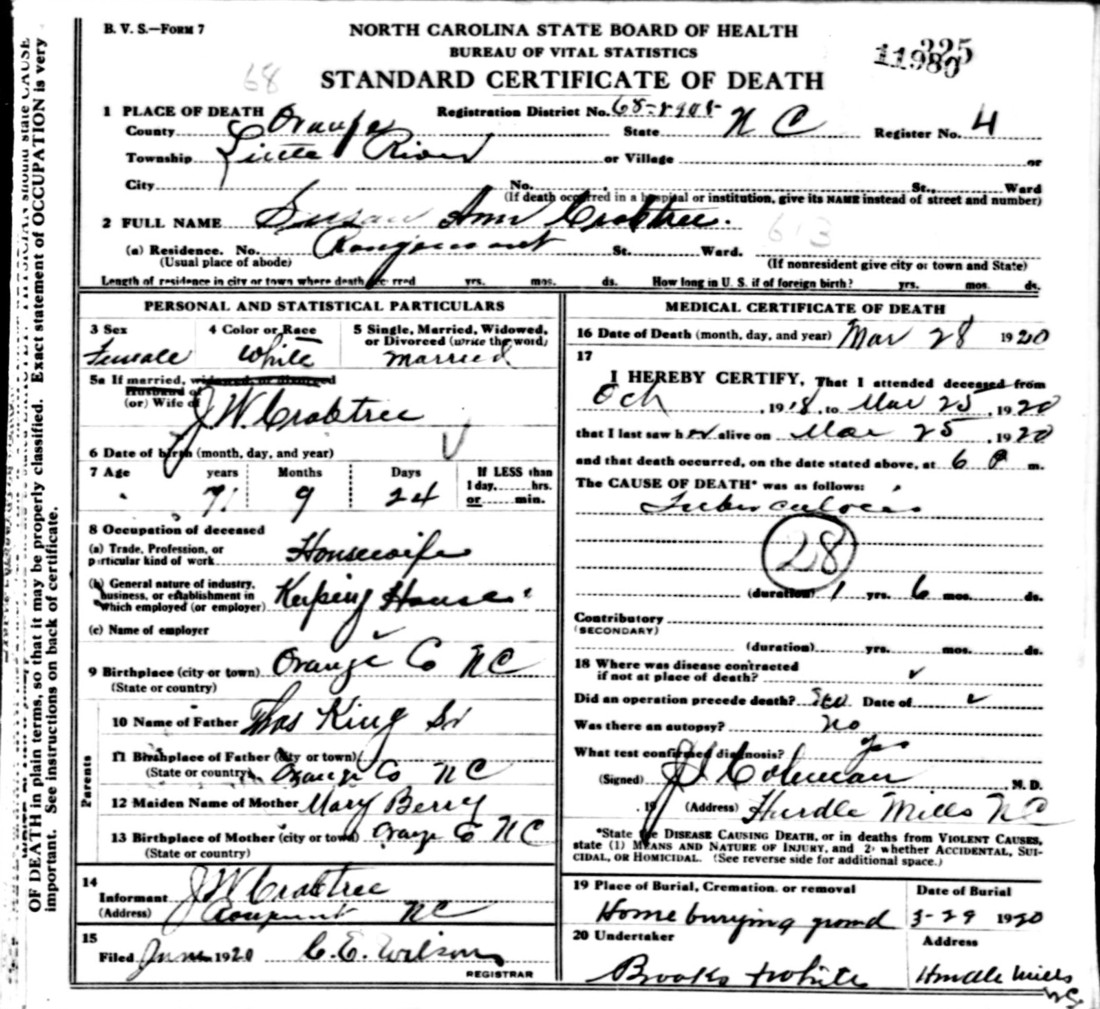 B. V. S.—Form 7
NORTH CAROLINA STATE BOARD OF HEALTH
BUREAU OF VITAL STATISTICS
STANDARD CERTIFICATE OF DEATH
11980
325
68
1 PLACE OF DEATH Registration District No. 68-8908-
County Orange State N C Register No. 4
Township Little River or Village or
City No. St., Ward
(If death occurred in a hospital or institution, give its NAME instead of street and number)
2 FULL NAME Susan Ann Crabtree.
613
(a) Residence. No. Rougemont St. Ward.
(Usual place of abode) (If nonresident give city or town and State)
Length of residence in city or town where death occurred yrs. mos. ds. How long in U. S. if of foreign birth? yrs. mos. ds.
PERSONAL AND STATISTICAL PARTICULARS
3 Sex 4 Color or Race 5 Single, Married, Widowed, or Divorced (write the word)
Female White married
5a If married, widowed, or divorced
Husband of
(or) Wife of J. W. Crabtree
6 Date of birth (month, day, and year)
7 Age years Months Days If LESS than
1 day, hrs.
or min.
71 9 24
8 Occupation of deceased
(a) Trade, Profession, or
particular kind of work Housewife
(b) General nature of industry,
business, or establishment in
which employed (or employer) Keeping House
(c) Name of employer
9 Birthplace (city or town) Orange Co NC
(State or country)
Parents
10 Name of Father Thos King Sr
11 Birthplace of Father (city or town)
(State or country) Orange Co NC
12 Maiden Name of Mother Mary Berry
13 Birthplace of Mother (city or town) Orange Co NC
(State or country)
14
Informant J W Crabtree
(Address) NC
15
Filed June 1920 C. E. Wilson
REGISTRAR
MEDICAL CERTIFICATE OF DEATH
16 Date of Death (month, day, and year) Mar 28 1920
17
I HEREBY CERTIFY, That I attended deceased from
Och, 1918, to Mar 25, 1920
that I last saw her alive on Mar 25, 1920
and that death occurred, on the date stated above, at 6 P m.
The CAUSE OF DEATH* was as follows:
Tuberculocis
28
(duration) 1 yrs. 6 mos. ds.
Contributory
(SECONDARY)
(duration) yrs. mos. ds.
18 Where was disease contracted
if not at place of death?
Did an operation precede death? Date of
Was there an autopsy? no
What test confirmed diagnosis? yes
(Signed) J. I. Coleman M. D.
, 19 (Address) Hurdle Mills NC
*State the DISEASE CAUSING DEATH, or in deaths from VIOLENT CAUSES,
state (1) MEANS AND NATURE OF INJURY, and 2) whether ACCIDENTAL, SUI-
CIDAL, OR HOMICIDAL. (See reverse side for additional space.)
19 Place of Burial, Cremation, or removal Date of Burial
Home burying ground 3-29 1920
20 Undertaker Address
Brooks & White Hurdle Mills
NC
should state CAUSE
OF DEATH in plain terms, so that it may be properly classified. Exact statement of OCCUPATION is very
important. See instructions on back of certificate.